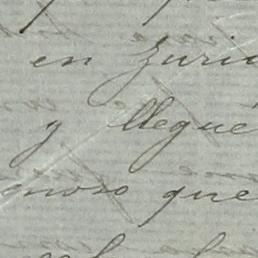 en Zuric
y llegué
moso que